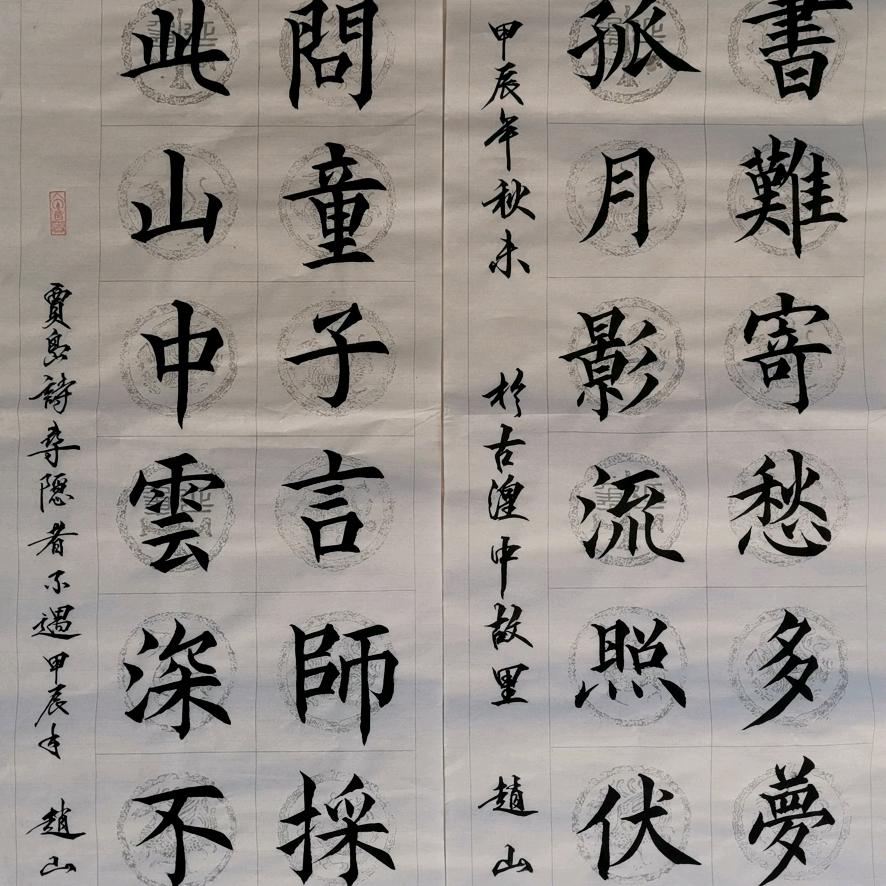 書難寄愁多夢
孤月影流照伏
甲辰年秋末 於古湟中故里 趙山
問童子言師採
此山中雲深不
賈島詩尋隱者不遇甲辰年 趙山